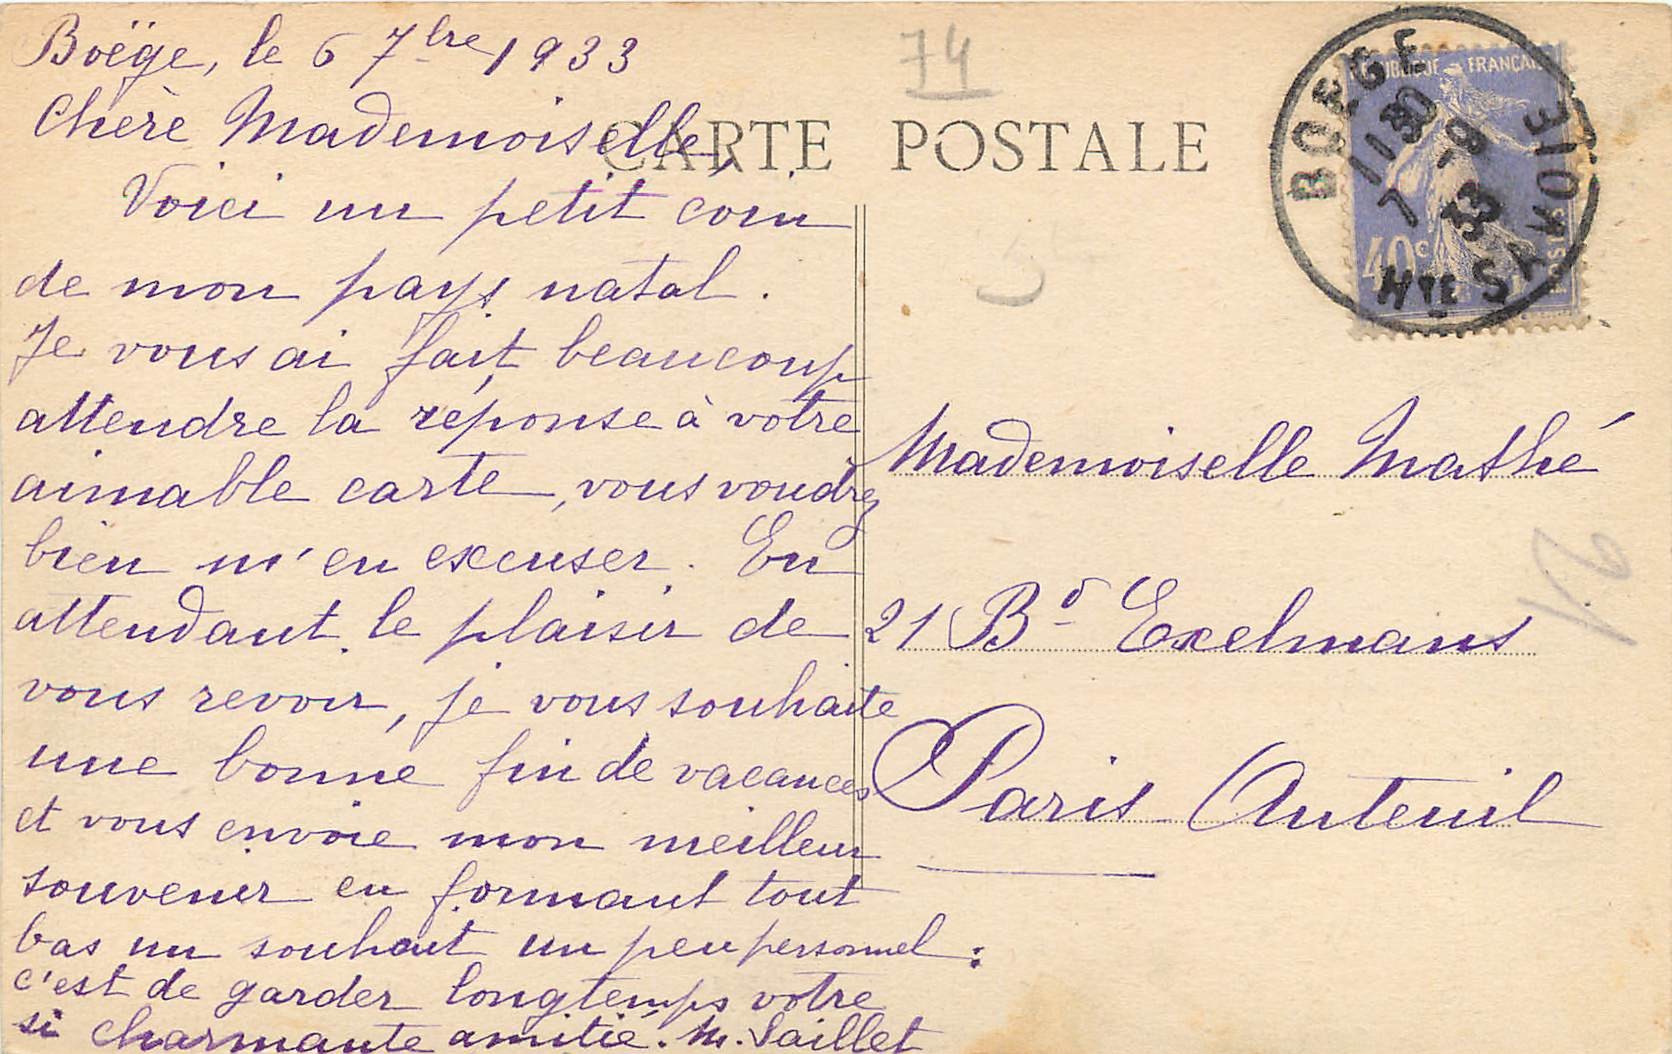 Boëge, le 6 7bre 1933
Chère Mademoiselle,
Voici un petit coin
de mon pays natal.
Je vous ai fait beaucoup
attendre la réponse à votre
aimable carte, vous voudrez
bien m'en excuser. En
attendant le plaisir de
vous revoir, je vous souhaite
une bonne fin de vacances
et vous envoie mon meilleur
souvenir en formant tout
bas un souhait un peu personnel :
c'est de garder longtemps votre
si charmante amitié. M. Saillet
74
CARTE POSTALE
BOEGE
11 30
7 -9
33
HTE SAVOIE
REPUBLIQUE FRANCAISE
40c
POSTES
Mademoiselle Mathé
21 Bd Exelmans
Paris-Auteuil
21